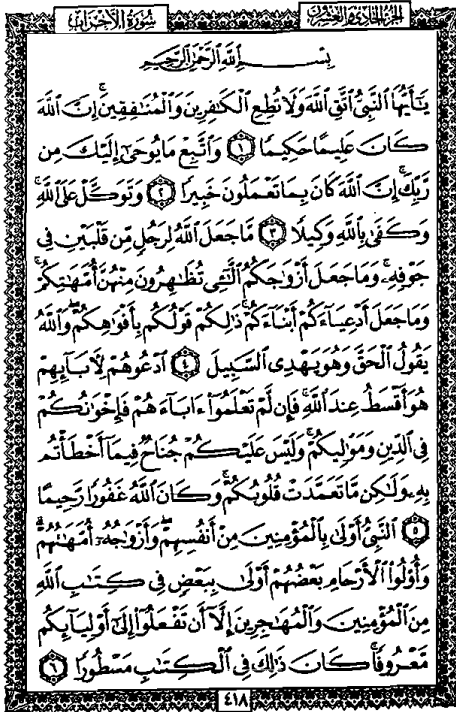 الجزء الحادي والعشرون
سُورَةُ الأَحْزَاب
بِسْمِ ٱللَّهِ ٱلرَّحْمَٰنِ ٱلرَّحِيمِ
يَٰٓأَيُّهَا ٱلنَّبِيُّ ٱتَّقِ ٱللَّهَ وَلَا تُطِعِ ٱلْكَٰفِرِينَ وَٱلْمُنَٰفِقِينَۗ إِنَّ ٱللَّهَ
كَانَ عَلِيمًا حَكِيمًا ١ وَٱتَّبِعْ مَا يُوحَىٰٓ إِلَيْكَ مِن
رَّبِّكَۚ إِنَّ ٱللَّهَ كَانَ بِمَا تَعْمَلُونَ خَبِيرًا ٢ وَتَوَكَّلْ عَلَى ٱللَّهِۚ
وَكَفَىٰ بِٱللَّهِ وَكِيلًا ٣ مَّا جَعَلَ ٱللَّهُ لِرَجُلٍ مِّن قَلْبَيْنِ فِي
جَوْفِهِۦۚ وَمَا جَعَلَ أَزْوَٰجَكُمُ ٱلَّٰٓـِٔي تُظَٰهِرُونَ مِنْهُنَّ أُمَّهَٰتِكُمْۚ
وَمَا جَعَلَ أَدْعِيَآءَكُمْ أَبْنَآءَكُمْۚ ذَٰلِكُمْ قَوْلُكُم بِأَفْوَٰهِكُمْۖ وَٱللَّهُ
يَقُولُ ٱلْحَقَّ وَهُوَ يَهْدِي ٱلسَّبِيلَ ٤ ٱدْعُوهُمْ لِأٓبَآئِهِمْ
هُوَ أَقْسَطُ عِندَ ٱللَّهِۚ فَإِن لَّمْ تَعْلَمُوٓا۟ ءَابَآءَهُمْ فَإِخْوَٰنُكُمْ
فِي ٱلدِّينِ وَمَوَٰلِيكُمْۚ وَلَيْسَ عَلَيْكُمْ جُنَاحٌ فِيمَآ أَخْطَأْتُم
بِهِۦ وَلَٰكِن مَّا تَعَمَّدَتْ قُلُوبُكُمْۚ وَكَانَ ٱللَّهُ غَفُورًا رَّحِيمًا
٥ ٱلنَّبِيُّ أَوْلَىٰ بِٱلْمُؤْمِنِينَ مِنْ أَنفُسِهِمْۖ وَأَزْوَٰجُهُۥٓ أُمَّهَٰتُهُمْۗ
وَأُو۟لُوا۟ ٱلْأَرْحَامِ بَعْضُهُمْ أَوْلَىٰ بِبَعْضٍ فِي كِتَٰبِ ٱللَّهِ
مِنَ ٱلْمُؤْمِنِينَ وَٱلْمُهَٰجِرِينَ إِلَّآ أَن تَفْعَلُوٓا۟ إِلَىٰٓ أَوْلِيَآئِكُم
مَّعْرُوفًاۚ كَانَ ذَٰلِكَ فِي ٱلْكِتَٰبِ مَسْطُورًا ٦
٤١٨